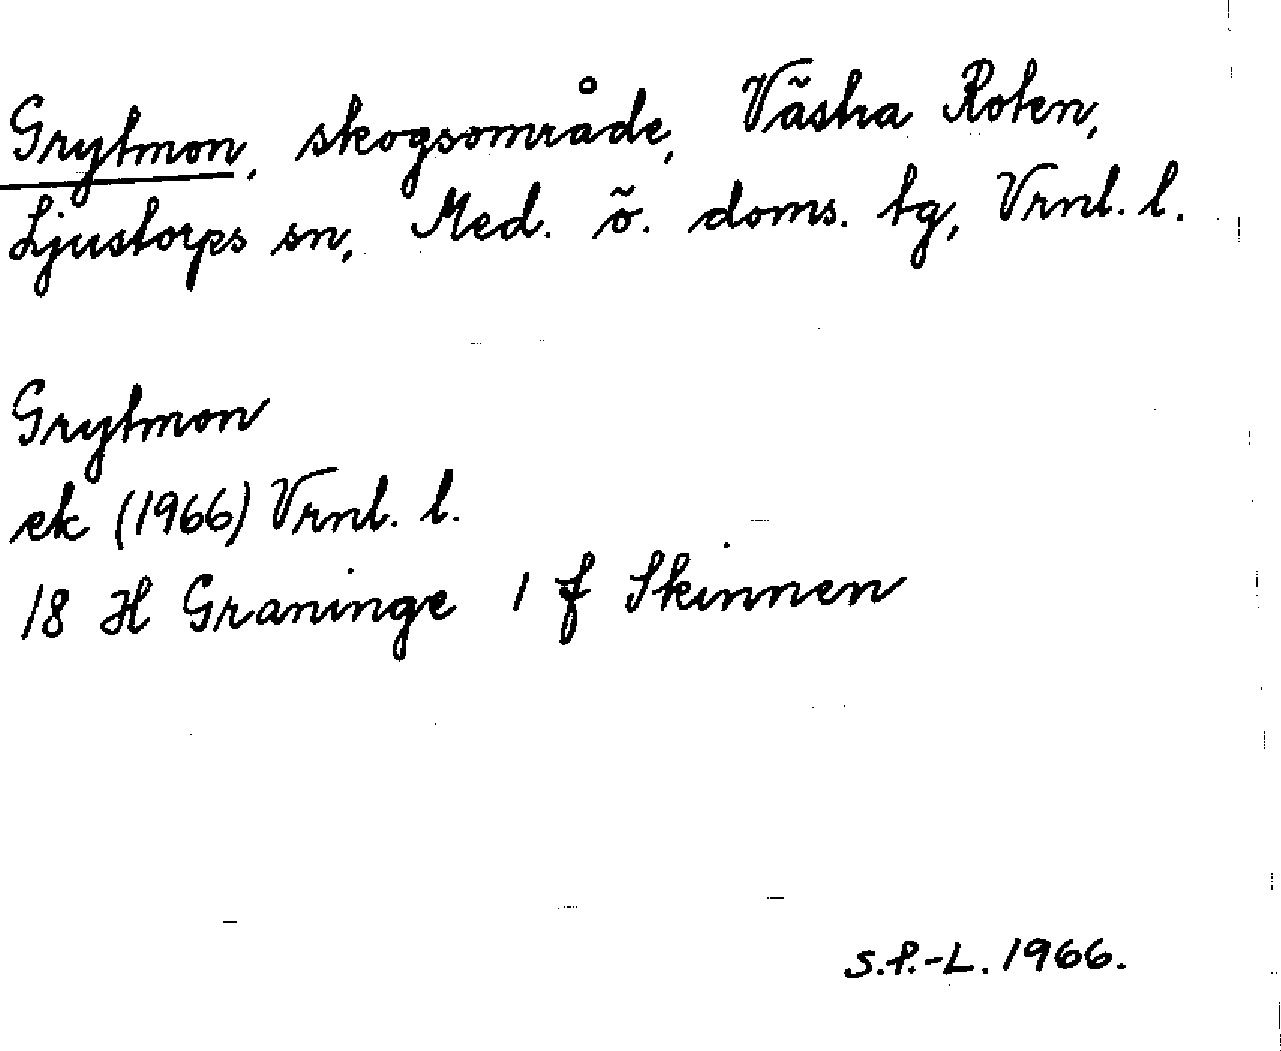 Grytmon, skogsområde, Västra Roten,
Ljustorps sn, Med. ö. doms. tg, Vrnl. l.
Grytmon
ek (1966) Vrnl. l.
18 H Graninge 1 f Skinnen
S.P.-L. 1966.